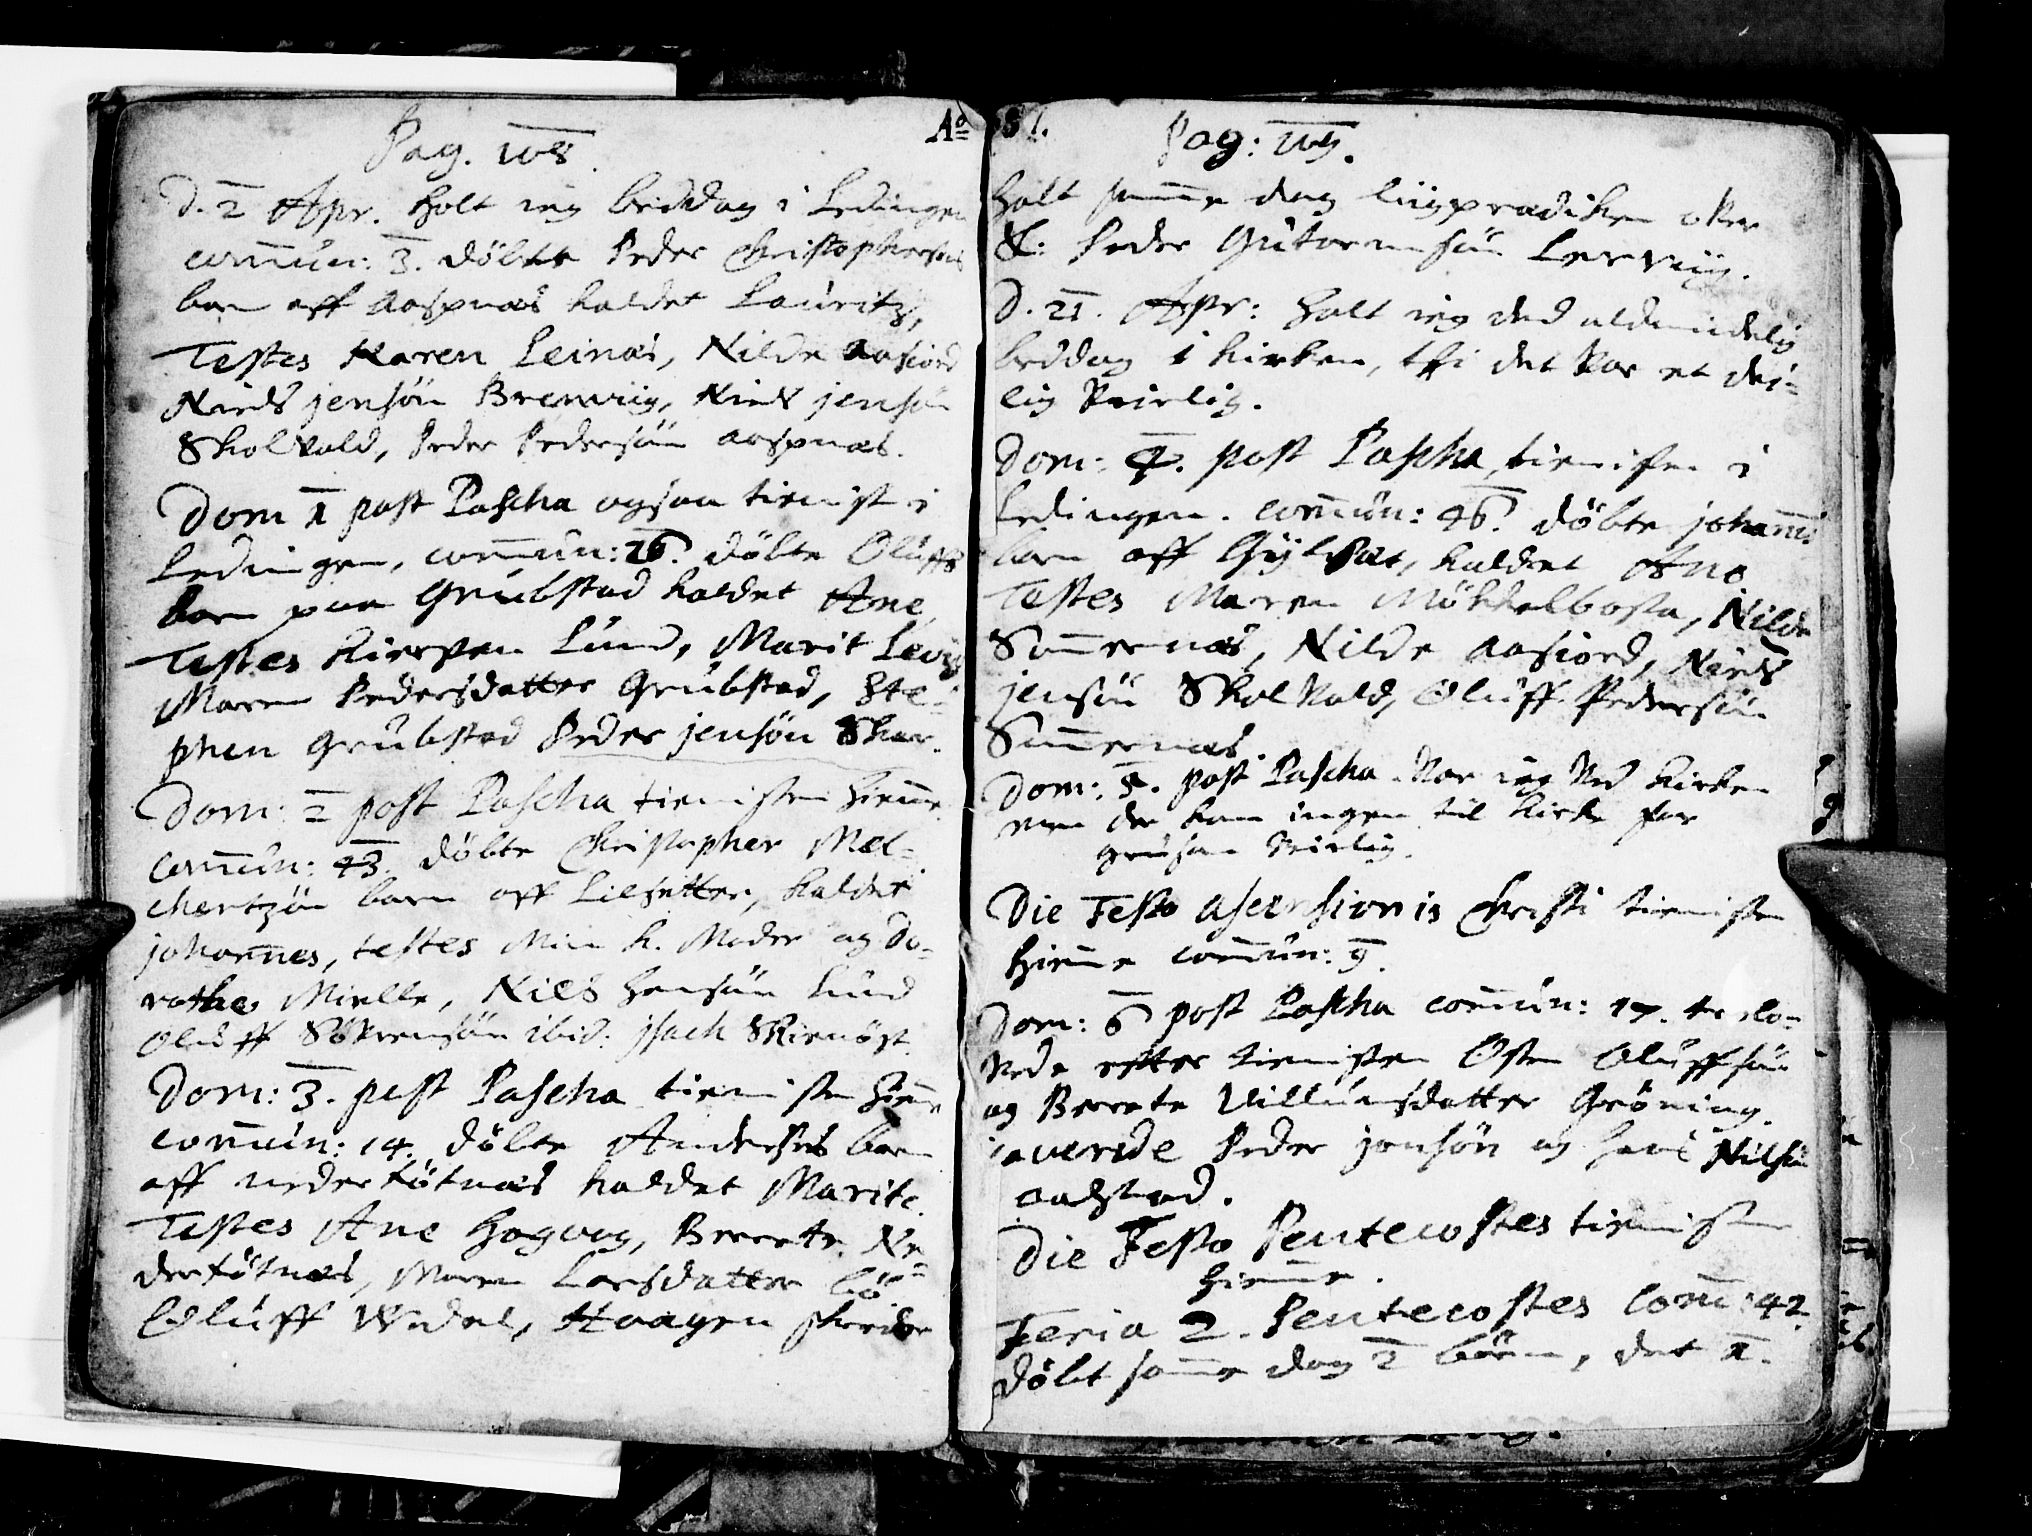 Pag. 108.
D. 2 Apr. Holt ieg beddag i Ledingen
com̅un: 3. döbte Peder Christophersens
barn aff Aaspnæs kaldet Lauritz,
Testes Karen Leinæs, Nilde Aafiord
Niels jensön Brenviig, Niels jensön
Skolvold, Peder Pedersön Aaspnæs.
Dom 1 post Pascha ogsaa tienist i
Ledingen, com̅un: 26. döbte Oluffs
barn paa Grubstad kaldet Ane,
Testes Kiersten Lund, Marit
Maren Pedersdatter Grubstad, Ste-
phen Grubstad Peder jensön
Dom: 2 post Pascha tienisten hiem̅e
com̅un: 43. döbte Christopher Mel-
chertzön barn aff Lilsetter, kaldet
johan̅nes, testes Min k. Moder og Do-
rothe Mielle, Niels Hansön Lund
Oluff Sörrensön ibid. jsach
Dom: 3. post Pascha tienisten hiem̅e
com̅un: 14. döbte Andersis barn
aff neder Kötnæs kaldet Marite.
Testes Ane Hogvog, Berrete Ne-
derkötnæs, Maren Larsdatter Bö
Oluff Widel, Haagen
Ao 87.
Pag: 109.
Holt sam̅e dag liigprædiken over
S: Peder Gutormsön Lerviig.
D. 21. Apr: Holt ieg ded aldmindelig
beddag i kirken, thi det var et dei-
lig veirlig.
Dom: 4. post Pascha, tienisten i
Ledingen. com̅un: 46. döbte johan̅is
barn aff Gylpæt, kaldet
Testes Maren Möckelbosta, Nilde
Sam̅ernæs, Nilde Aafiord, Niels
jensön Skolvold, Oluff Pedersön
Sam̅ernæs.
Dom: 5. post Pascha. Var ieg ved kirken
men der kom ingen til kircke for
grusom veirlig.
Die Festo Ascensionis Christi tienisten
hiem̅e com̅un: 9.
Dom: 6 post Pascha com̅un: 17. trolo-
vede efter tienisten Osten Oluffsön
og Berrete Villumsdatter Gröning.
caverede Peder jonsön og Hans Nilsön
Die Festo Pentecostes tienisten
hiem̅e.
Feria 2. Pentecostes Com̅: 42.
döbt sam̅e dag 2 börn, det 1.